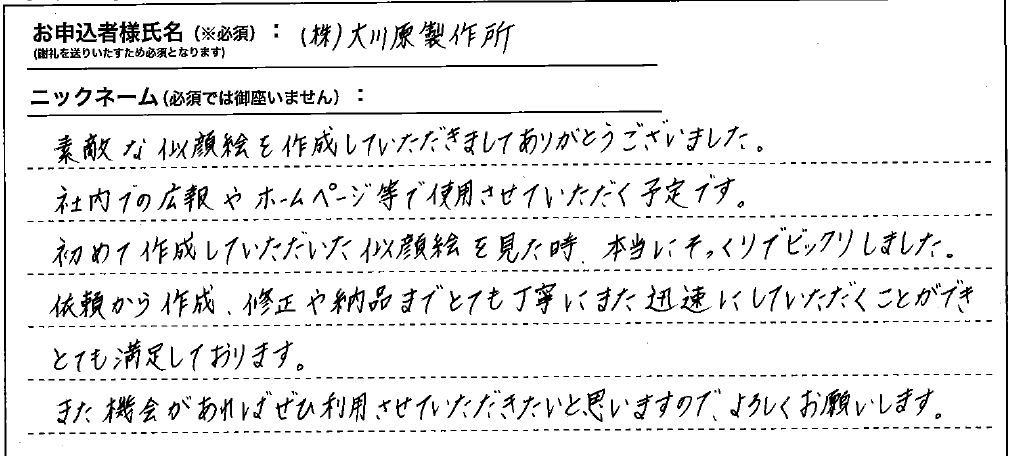 お申込者様氏名（※必須）：（株）大川原製作所
（謝礼を送りいたすため必須となります）
ニックネーム（必須では御座いません）：
素敵な似顔絵を作成していただきましてありがとうございました。
社内での広報やホームページ等で使用させていただく予定です。
初めて作成していただいた似顔絵を見た時、本当にそっくりでビックリしました。
依頼から作成、修正や納品までとても丁寧にまた迅速にしていただくことができ
とても満足しております。
また機会があればぜひ利用させていただきたいと思いますので、よろしくお願いします。